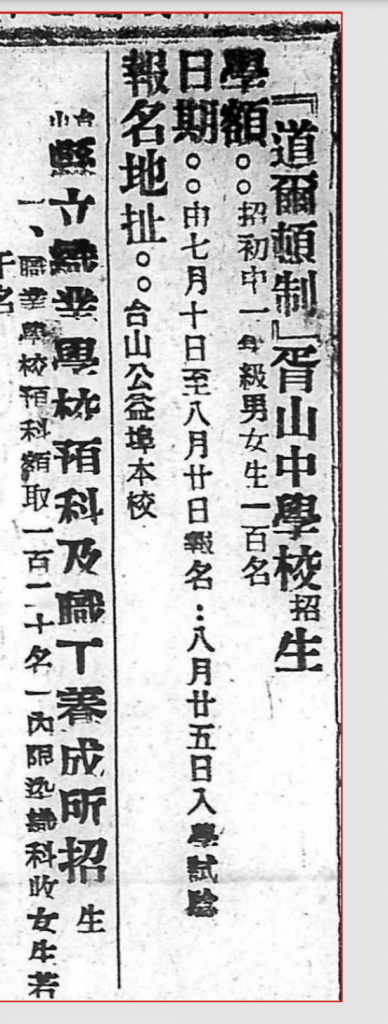 『道爾頓制』胥山中學校招生
學額。。招初中一年級男女生一百名
日期。。由七月十日至八月廿日報名：八月廿五日入學試驗
報名地址。。台山公益埠本校
台山縣立職業學校預科及職工養成所招生
一、職業學校預科額取一百二十名一內限染織科收女生若
干名